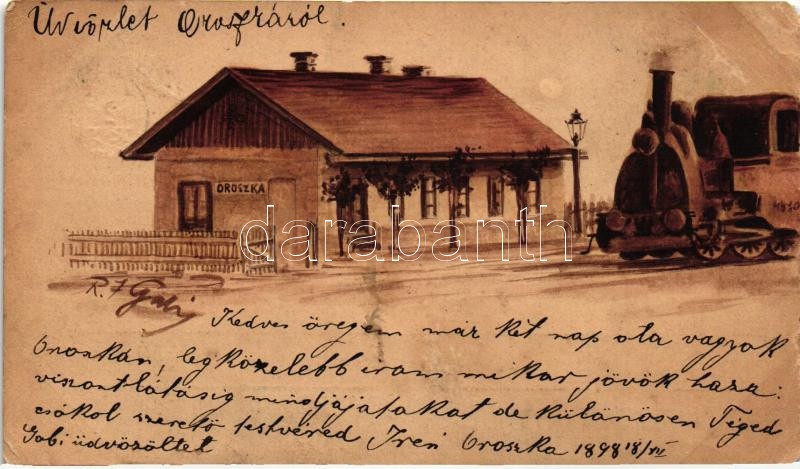 Üdvözlet Oroszkáról.
OROSZKA
darabanth
R. F. Gabi
Kedves öregem már két nap ota vagyok
Oroszkán, legközelebb irom mikor jövök haza:
viszontlátásig mindjájatokat de különösen Téged
csókol szerető testvéred Irén Oroszka 1898 18/VII
Gabi üdvözöltet